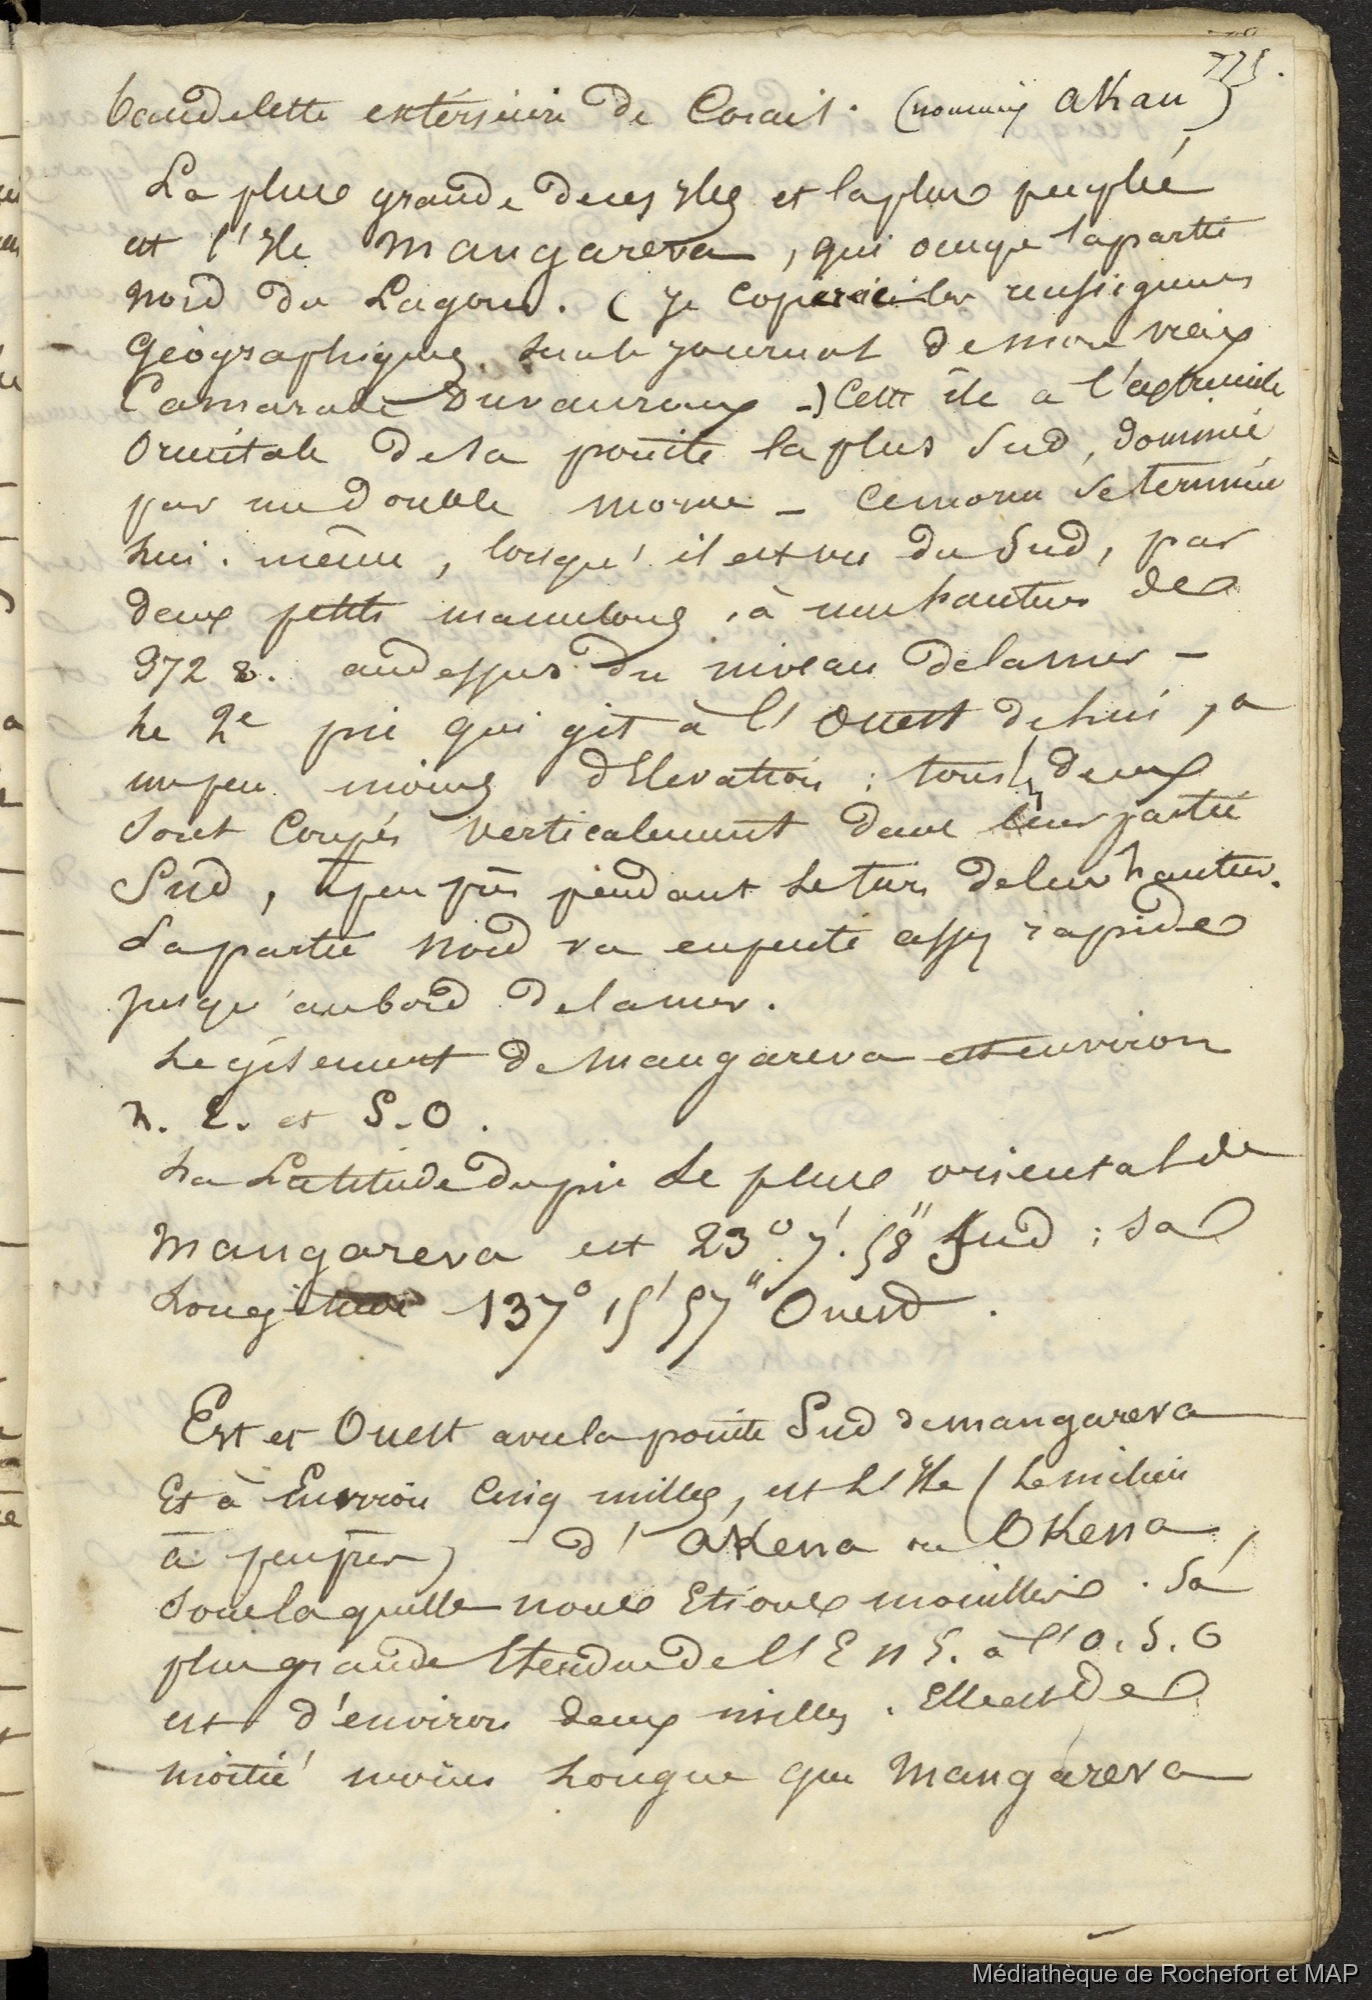 775.
bandelette extérieure de Corail. (nommée aKau)
La plus grande de ces Iles et la plus peuplée
est l'Ile Mangareva, qui occupe la partie
nord du Lagon. (Je copie ici les renseignemens
Géographiques sur le journal de mon vieux
Camarade Duvauroux -) Cette île a l'extrémité
Orientale de sa pointe la plus Sud, dominée
par un double morne - ce morne se termine
lui-même, lorsqu'il est vu du Sud, par
deux petits mamelons, à une hauteur de
372 au dessus du niveau de la mer -
Le 2e pic qui gît à l'Ouest de lui, a
un peu moins d'Elevation : tous les deux
sont Coupés verticalement dans leur partie
Sud, à peu près pendant le tiers de leur hauteur.
La partie Nord va en pente assez rapide
jusqu'au bord de la mer.
Le gisement de Mangareva est environ
N. E. et S.O.
La Latitude du pic le plus oriental de
Mangareva est 23° 7' 58" Sud ; sa
Longitude 137° 15' 57" Ouest.
Est et Ouest avec la pointe Sud de Mangareva
Et à Environ Cinq milles, est l'Ile (le milieu
à peu près) d'aKena ou OKena,
sous laquelle nous Etions mouillés. Sa
plus grande Etendue de l'E N E. à l'O. S. O
est d'environ deux milles. Elle est de
moitié moins Longue que Mangareva
Médiathèque de Rochefort et MAP